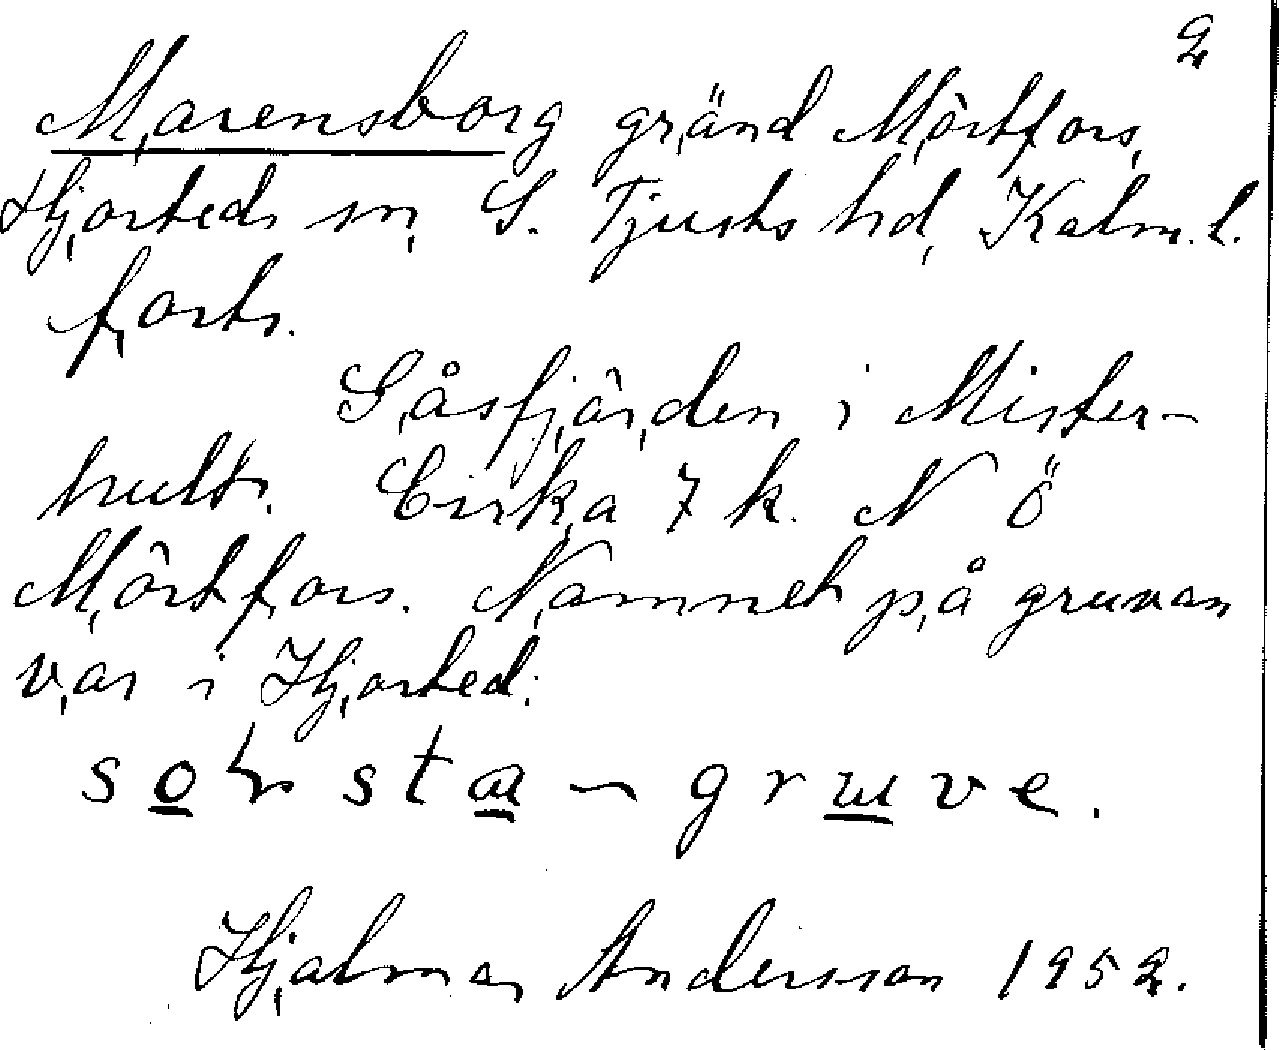 2
Marensborg gränd Mörtfors,
Hjorteds sn, S. Tjusts hd, Kalm. l.
forts.
Såsfjärden i Mister-
hults. Cirka 7 k. N Ö
Mörtfors. Namnet på gruvan
var i Hjorted:
sta - gruve.
Hjalmar Andersson 1952.